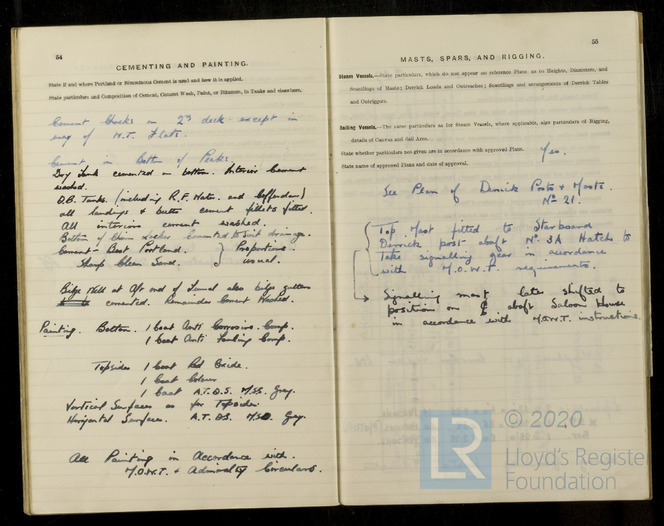 54
CEMENTING AND PAINTING.
State if and where Portland or Bituminous Cement is used and how it is applied.
State particulars and Composition of Cement, Cement Wash, Paint, or Bitumen, in Tanks and elsewhere.
Cement Decks on 2nd deck except in
way of W.T. Flats.
Cement in Bottom of Peaks.
Dry Tank cemented on bottom. Interior Cement
washed.
D.B. Tanks. (including R.F. Water. and Cofferdam)
all landings & butts cement fillets fitted.
All interiors cement washed.
Bottom of Chain Locker Cemented to suit drainage.
Cement - Best Portland. } Proportions
Sharp Clean Sand. } usual.
Bilge Well at Aft end of Tunnel also bilge gutters
cemented. Remainder Cement Washed.
Painting. Bottom. 1 Coat Anti Corrosive Comp.
1 Coat Anti Fouling Comp.
Topsides 1 Coat Red Oxide.
1 Coat Colour
1 Coat A.T.D.S. M.S.S. Grey.
Vertical Surfaces as for Topsides
Horizontal Surfaces. A.T.D.S. Grey.
All Painting in Accordance with.
M.O.W.T. & Admiralty Circulars.
55
MASTS, SPARS, AND RIGGING.
Steam Vessels.—State particulars, which do not appear on reference Plans as to Heights, Diameters, and
Scantlings of Masts; Derrick Loads and Outreaches; Scantlings and arrangements of Derrick Tables
and Outriggers.
Sailing Vessels.—The same particulars as for Steam Vessels, where applicable, also particulars of Rigging,
details of Canvas and Sail Area.
State whether particulars not given are in accordance with approved Plans. Yes.
State name of approved Plans and date of approval.
See Plan of Derrick Posts & Masts.
No 21.
Top Mast fitted to Starboard
Derrick post abaft No 3A Hatch to
Take signalling gear in accordance
with M.O.W.T. requirements.
Signalling mast later shifted to
position on ℄ abaft Saloon House
in accordance with M.O.W.T. instructions.
LR
© 2020
Lloyd's Register
Foundation